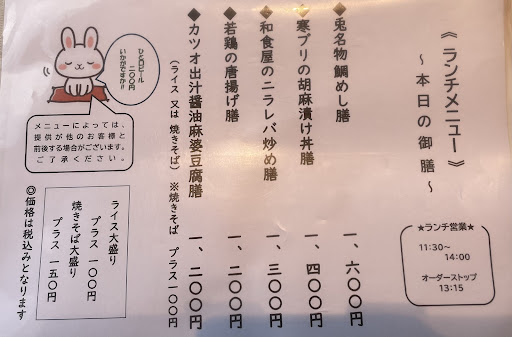 《ランチメニュー》
～本日の御膳～
★ランチ営業★
11:30～
14:00
オーダーストップ
13:15
◆兎名物 鯛めし膳 一、六〇〇円
◆寒ブリの胡麻漬け丼膳 一、四〇〇円
◆和食屋のニラレバ炒め膳 一、三〇〇円
◆若鶏の唐揚げ膳 一、二〇〇円
◆カツオ出汁醤油麻婆豆腐膳 一、二〇〇円
（ライス 又は 焼きそば）※焼きそば プラス一〇〇円
ひとくちビール
二〇〇円
いかがですか!!
メニューによっては、
提供が他のお客様と
前後する場合がございます。
ご了承ください。
ライス大盛り
プラス 一〇〇円
焼きそば大盛り
プラス 一五〇円
◎価格は税込みとなります